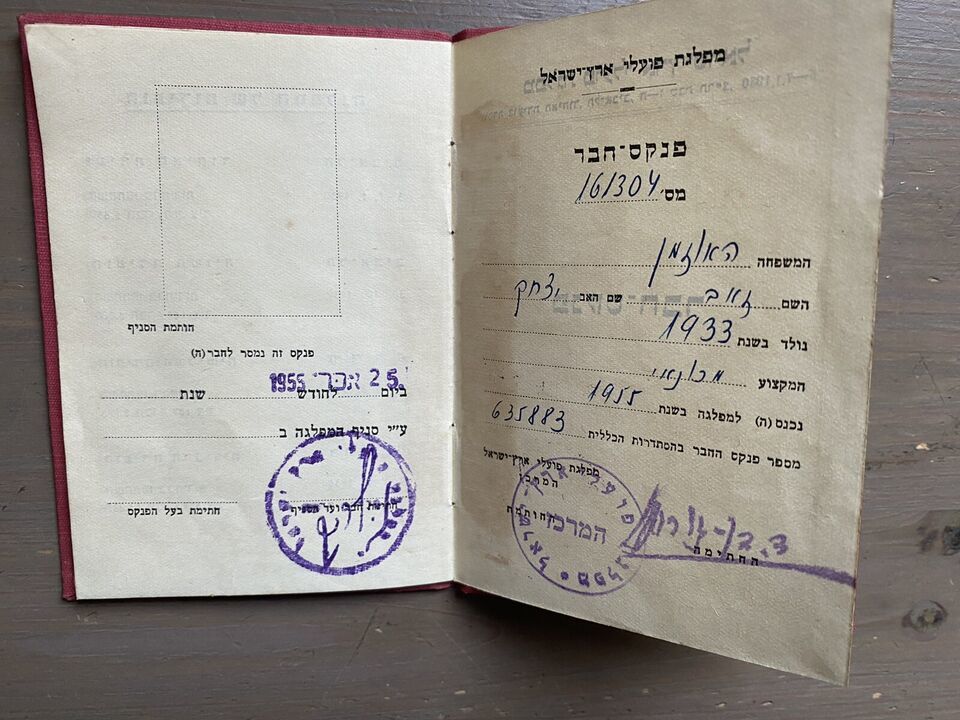 מפלגת פועלי ארץ־ישראל
פנקס־חבר
מס׳ 161304
המשפחה האוזמן
השם זאב שם האב יצחק
נולד בשנת 1933
המקצוע מכונאי
נכנס(ה) למפלגה בשנת 1955
מספר פנקס החבר בהסתדרות הכללית 635883
מפלגת פועלי ארץ־ישראל
המרכז
החותמת
החתימה
המרכז
חותמת הסניף
פנקס זה נמסר לחבר(ה)
25 אפר׳ 1955
ביום לחודש שנת
ע״י סניף המפלגה ב
חתימת חבר ועד הסניף
חתימת בעל הפנקס